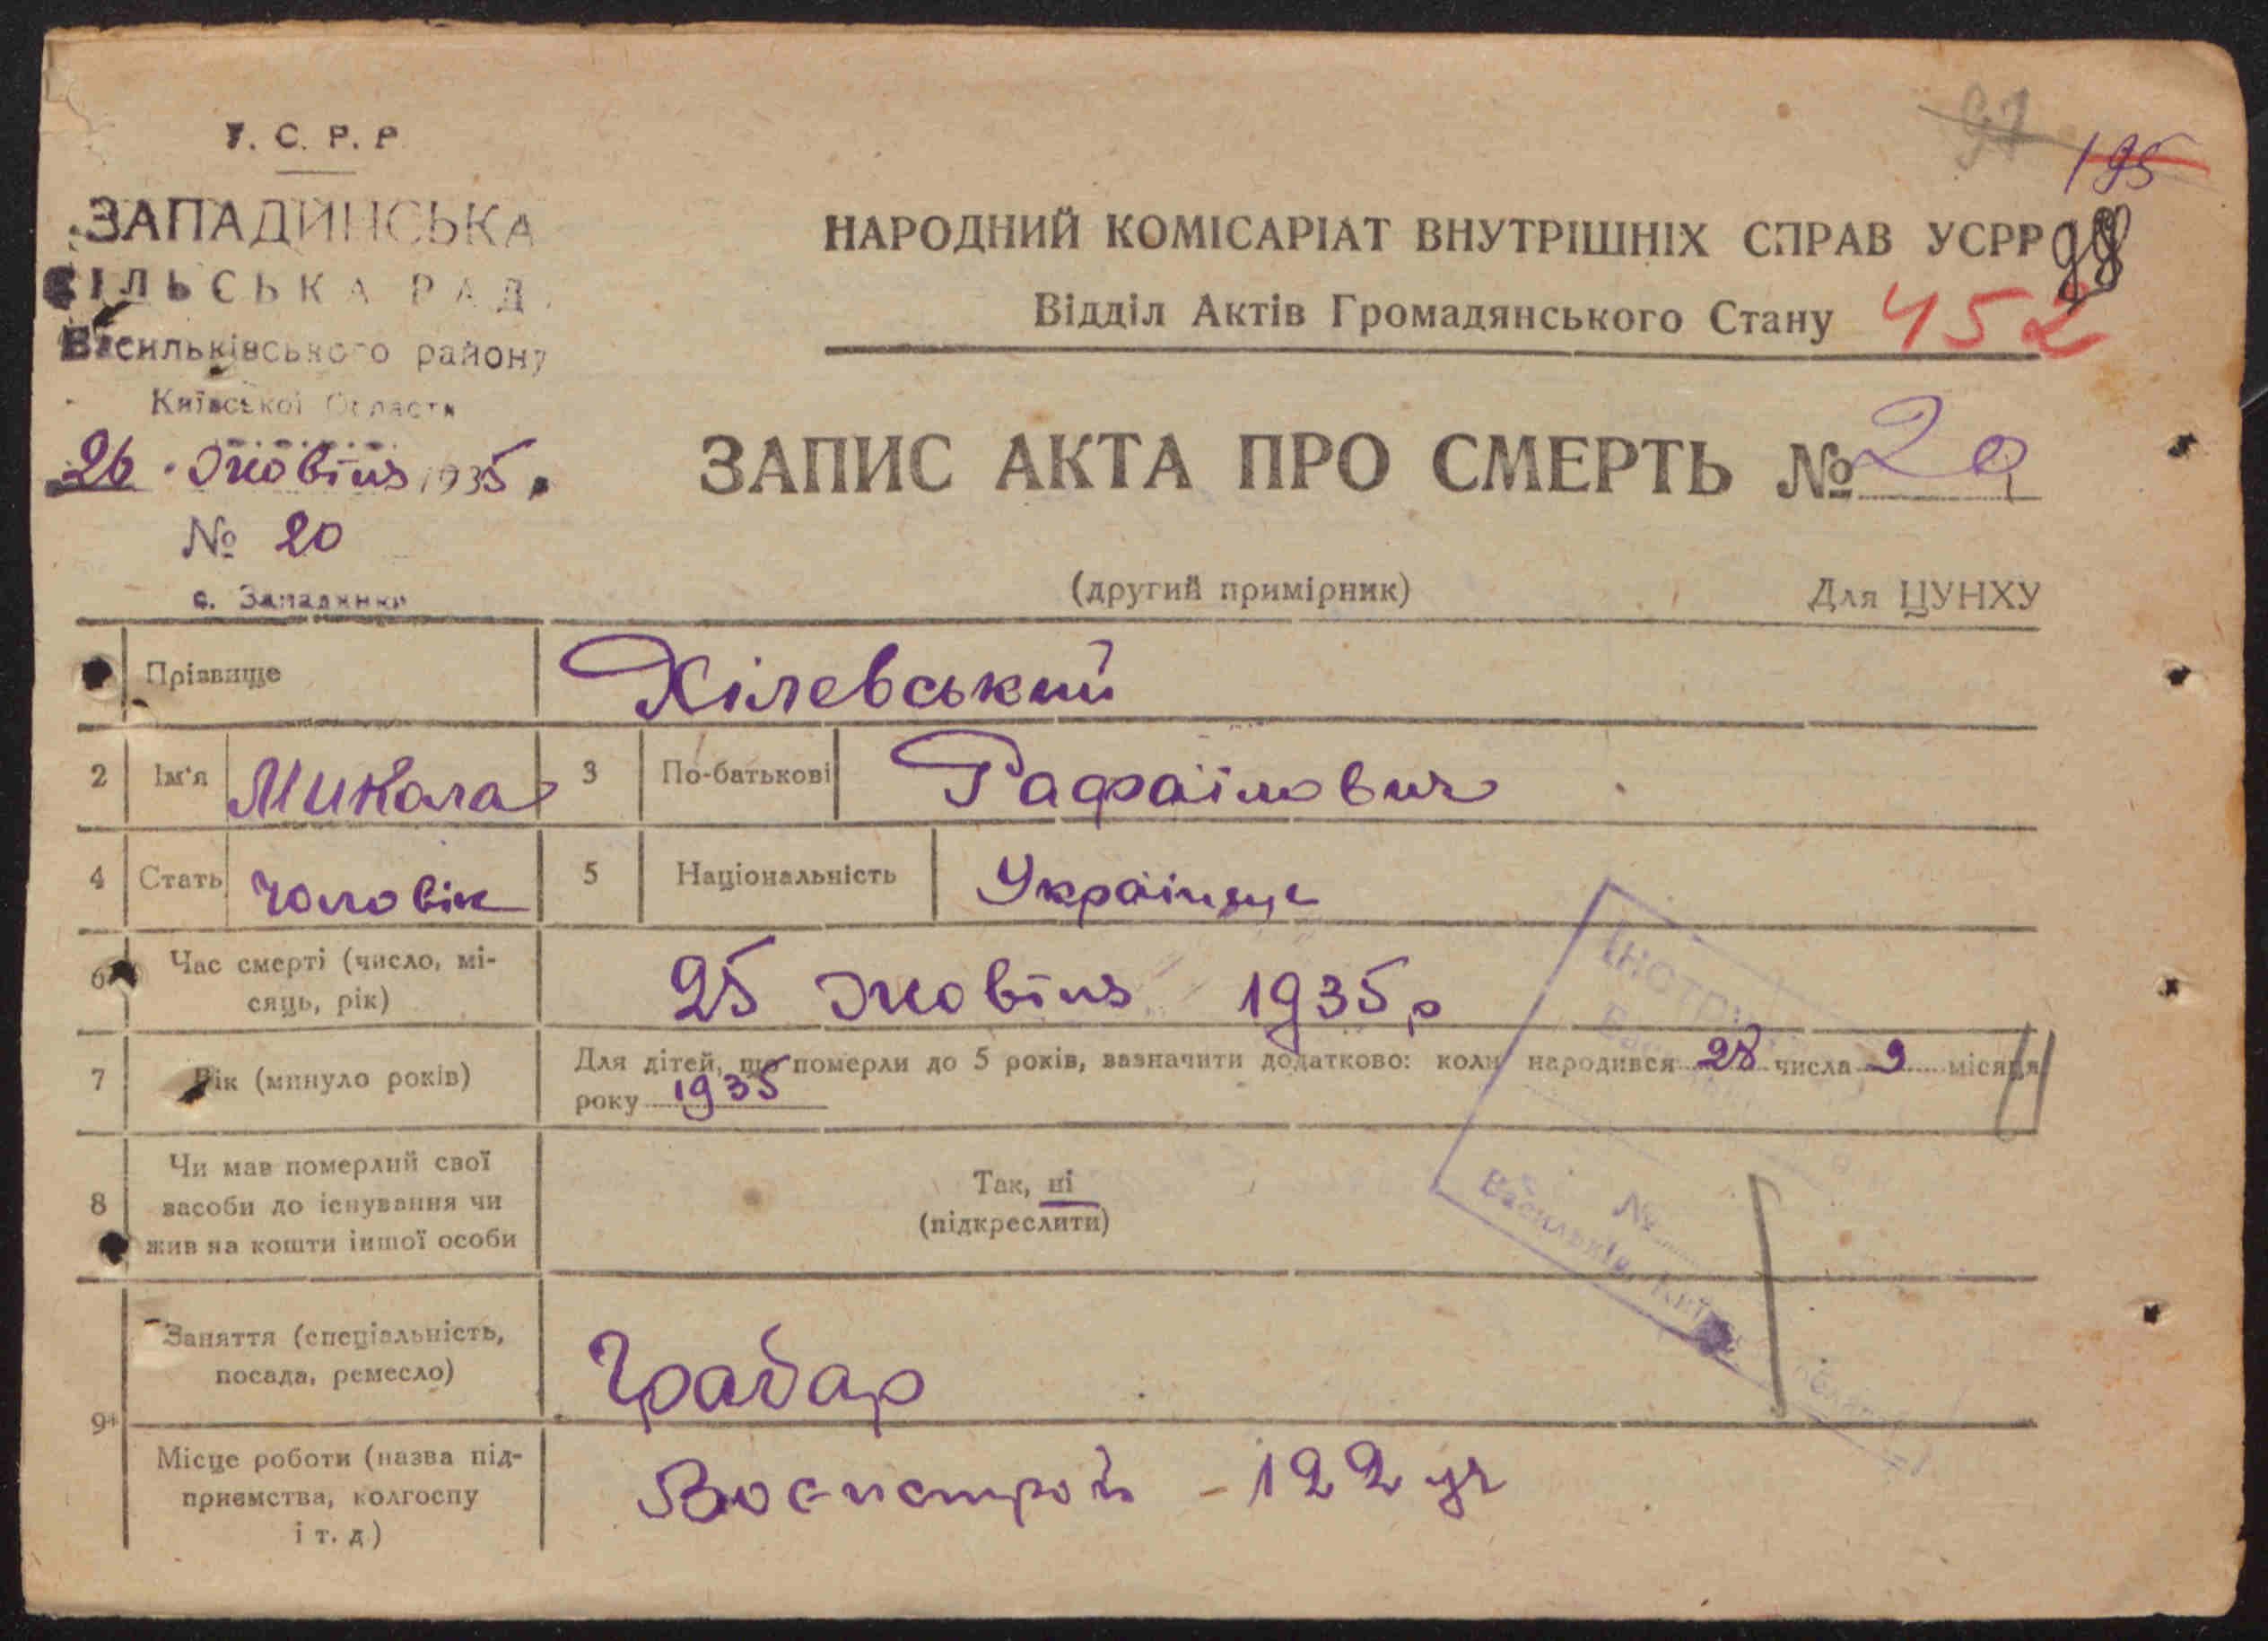 У. С. Р. Р.
ЗАПАДИНСЬКА
СІЛЬСЬКА РАДА
Васильківського району
Київської Области
26 Жовтня 1935 р.
№ 20
с. Западинки
97
195
98
НАРОДНИЙ КОМІСАРІАТ ВНУТРІШНІХ СПРАВ УСРР
Відділ Актів Громадянського Стану
452
ЗАПИС АКТА ПРО СМЕРТЬ № 20
(другий примірник) Для ЦУНХУ
Прізвище Хілевський
2 Ім'я Микола 3 По-батькові Рафаїлович
4 Стать Чоловік 5 Національність Українец
6 Час смерті (число, мі-
сяць, рік) 25 Жовтня 1935 р
7 Вік (минуло років) Для дітей, що померли до 5 років, зазначити додатково: коли народився 28 числа 9 місяця
року 1935
8 Чи мав померлий свої
засоби до існування чи
жив на кошти іншої особи
Так, ні
(підкреслити)
№
Васильків, Київ
9 Заняття (спеціальність,
посада, ремесло) Грабар
Місце роботи (назва під-
приємства, колгоспу
і т. д) Военстрой - 122 уч